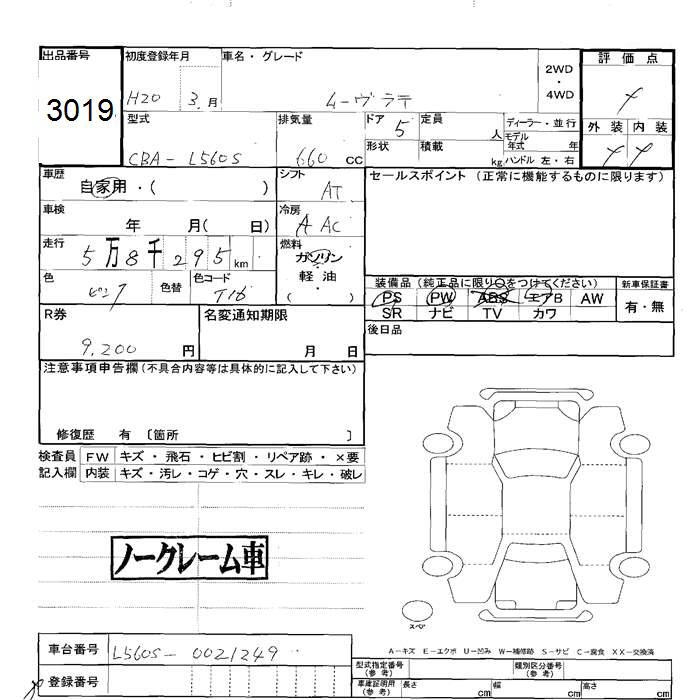 出品番号 初度登録年月 車名・グレード 2WD・4WD 評価点
3019 H20 3.月 ムーヴラテ
型式 排気量 ドア 5 定員 人 ディーラー・並行 外装 内装
CBA-L560S 660 CC 形状 積載 kg モデル年式 年 ハンドル 左・右
車歴 シフト セールスポイント (正常に機能するものに限ります)
自家用・( ) AT
車検 年 月( 日) 冷房 AAC
走行 5万8千295km 燃料 ガソリン・軽油・( )
色 ピンク 色替 色コード T16
装備品 (純正品に限り○をつけてください) 新車保証書
PS PW ABS エアB AW 有・無
SR ナビ TV カワ
R券 名変通知期限 後日品
9,200 円 月 日
注意事項申告欄 (不具合内容等は具体的に記入して下さい)
修復歴 有 〔箇所 〕
検査員 FW キズ・飛石・ヒビ割・リペア跡・×要
記入欄 内装 キズ・汚レ・コゲ・穴・スレ・キレ・破レ
ノークレーム車
スペア
A−キズ E−エクボ U−凹み W−補修跡 S−サビ C−腐食 XX−交換済
車台番号 L560S-0021249
型式指定番号 (参考) 類別区分番号 (参考)
登録番号
車庫証明用 (参考) 長さ cm 幅 cm 高さ cm